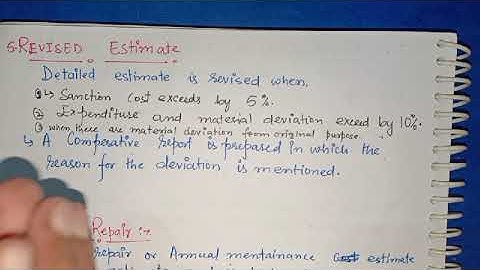 5. REVISED Estimate
Detailed estimate is revised when.
① ↳ Sanction Cost exceeds by 5%.
② Expenditure and material deviation exceed by 10%.
③ when there are material deviation from original purpose.
↳ A Comperative report is prepared in which the
reason for the deviation is mentioned.
Repair :-
repair or Annual mentainance estimate